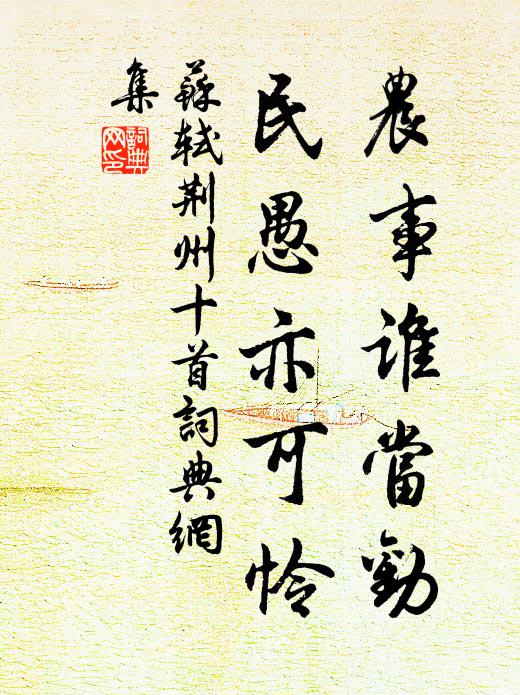 農事誰當勸
民愚亦可怜
蘇軾荆州十首詞典網
集
詞典
网印